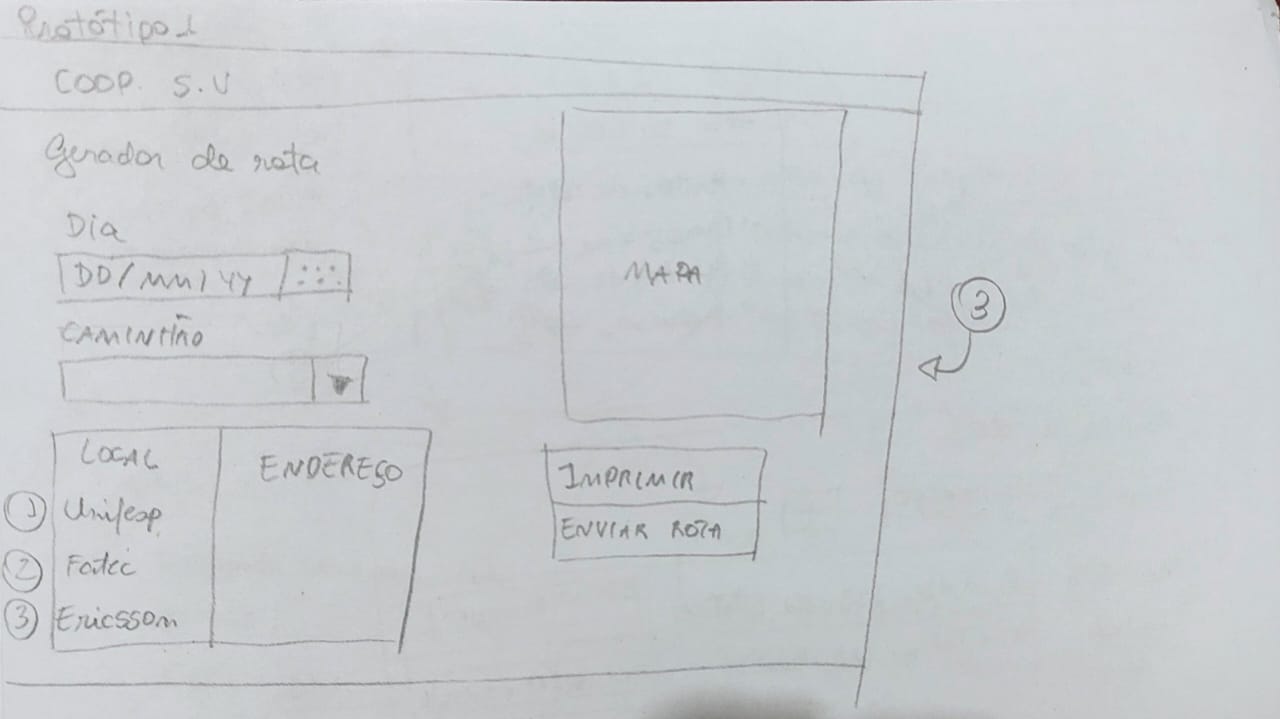 Protótipo 1
COOP. S.V
Gerador de rota
Dia
DD/MM/YY
CAMINHÃO
LOCAL
ENDEREÇO
1 Unifesp
2 Fatec
3 Ericsson
MAPA
IMPRIMIR
ENVIAR ROTA
3